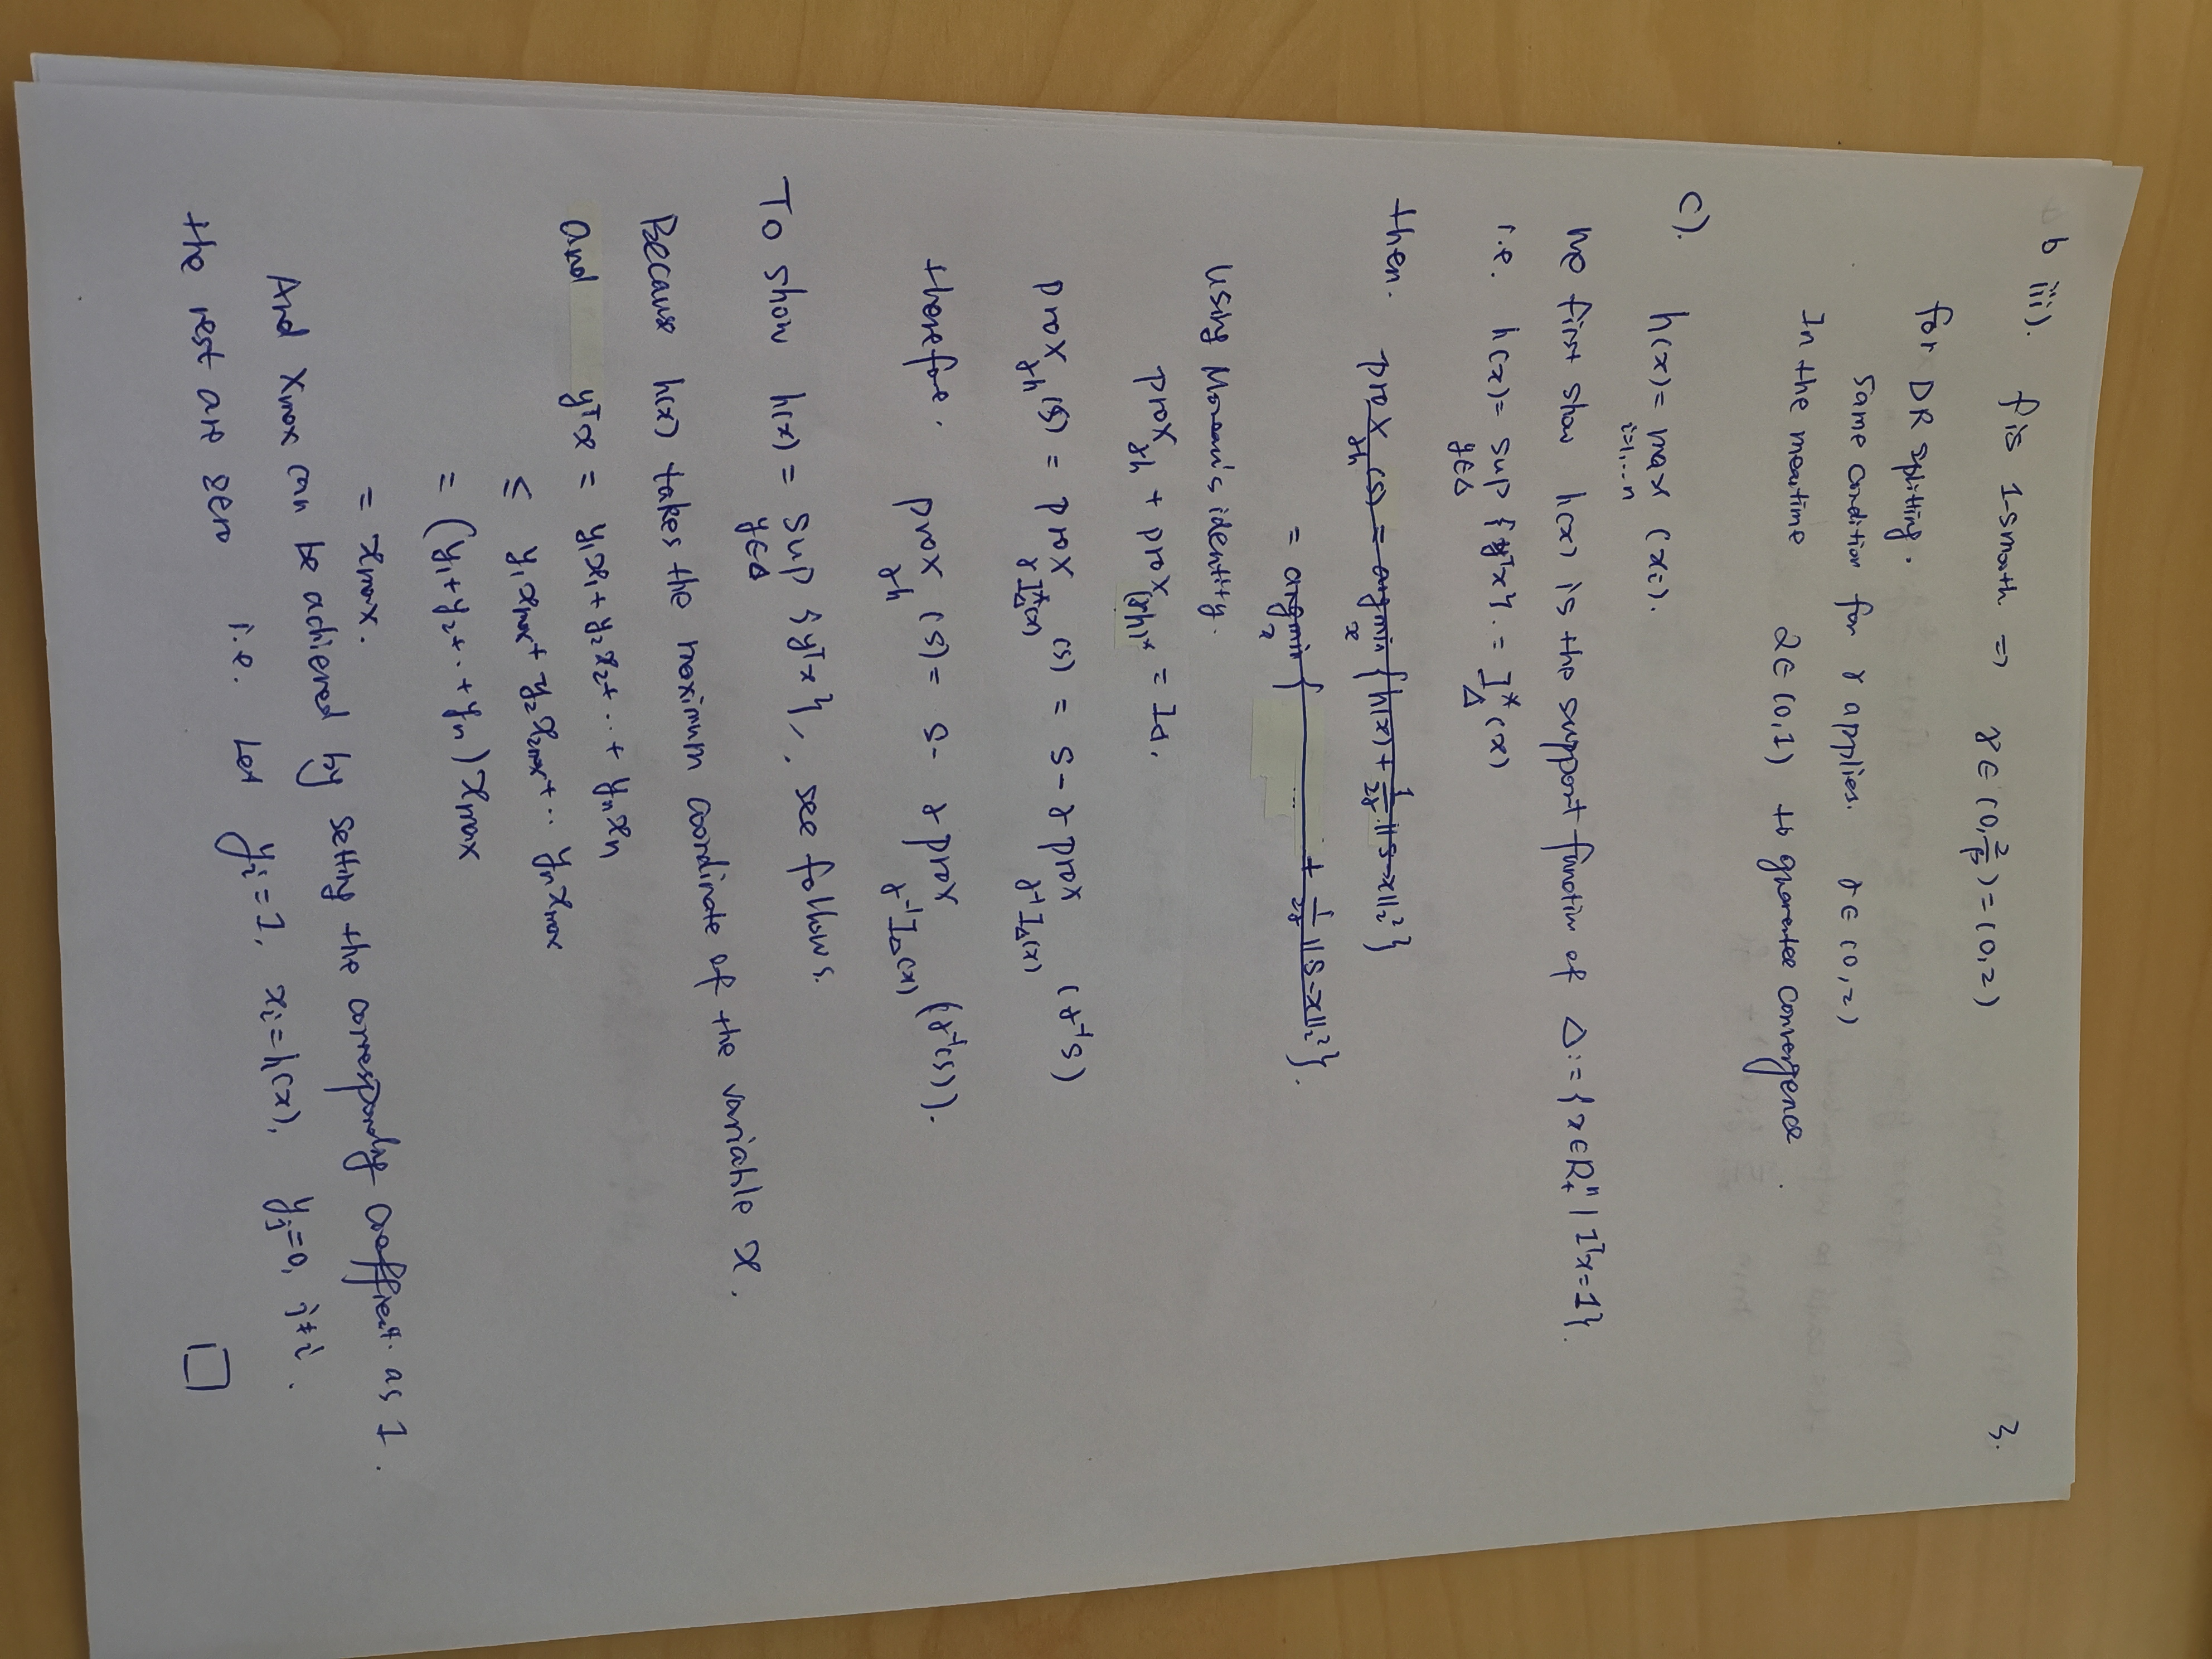 b iii). f is 1-smooth => γ ∈ (0, 2/β) = (0, 2) 3.
for DR splitting.
Same condition for γ applies. γ ∈ (0, 2)
In the meantime λ ∈ (0, 1) to guarantee convergence
c). h(x) = max (xi).
i=1,...n
we first show h(x) is the support function of Δ := {x ∈ R₊ⁿ | 1ᵀx = 1}.
i.e. h(x) = sup {yᵀx}. = I*_Δ (x)
y∈Δ
then. prox_γh (s) = argmin {h(x) + 1/2γ ||s-x||₂²}
x
= argmin { + 1/2γ ||s-x||₂²}.
x
using Moreau's identity.
prox_γh + prox_(γh)* = Id.
prox_γh (s) = prox_γI*_Δ(x) (s) = s - γ prox_γ⁻¹I_Δ(x) (γ⁻¹s)
therefore, prox_γh (s) = s - γ prox_γ⁻¹I_Δ(x) (γ⁻¹(s)).
To show h(x) = sup {yᵀx}, see follows.
y∈Δ
Because h(x) takes the maximum coordinate of the variable x.
and yᵀx = y₁x₁ + y₂x₂ + .. + yₙxₙ
≤ y₁xmax + y₂x₂max + ... yₙxmax
= (y₁ + y₂ + .. + yₙ) xmax
= xmax.
And xmax can be achieved by setting the correspondly coefficient as 1.
the rest are zero i.e. Let yi = 1, xi = h(x), yj = 0, j ≠ i.